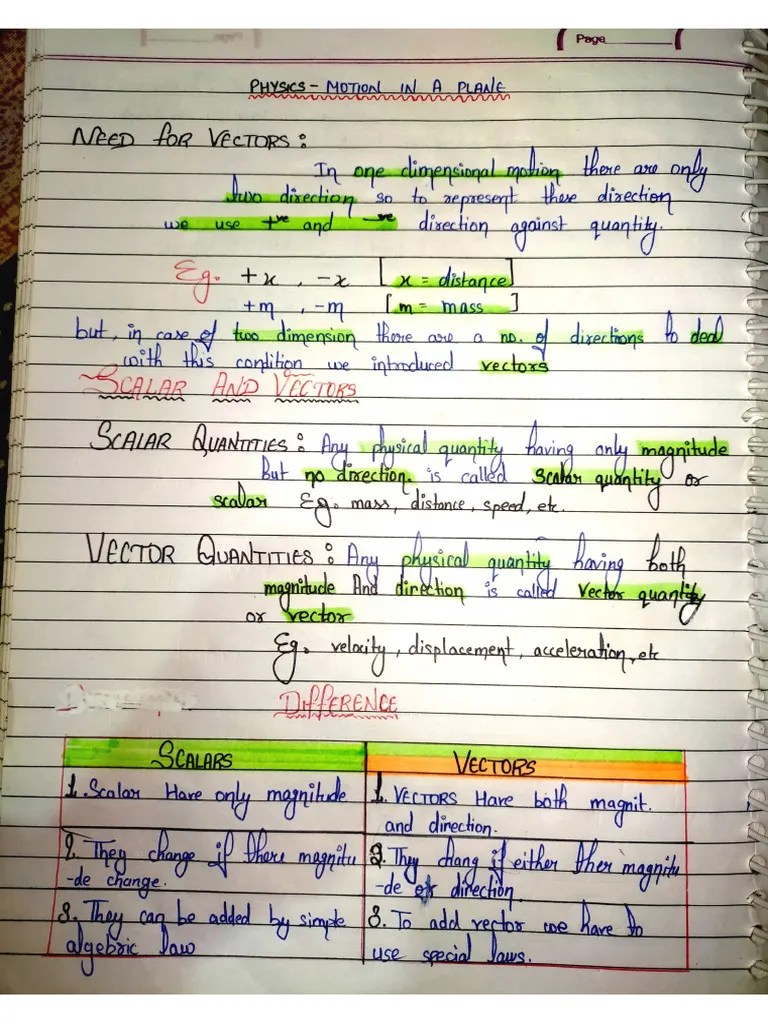 Page
PHYSICS - MOTION IN A PLANE
NEED FOR VECTORS:
In one dimensional motion there are only
two direction so to represent these direction
we use +ve and -ve direction against quantity.
Eg. +x , -x [x = distance]
+m , -m [m = mass]
but, in case of two dimension there are a no. of directions to deal
with this condition we introduced vectors
SCALAR AND VECTORS
SCALAR QUANTITIES: Any physical quantity having only magnitude
But no direction. is called Scalar quantity or
scalar Eg. mass, distance, speed, etc.
VECTOR QUANTITIES: Any physical quantity having both
magnitude And direction is called Vector quantity
or vector
Eg. velocity, displacement, acceleration, etc
DIFFERENCE
SCALARS
VECTORS
1. Scalar Have only magnitude
1. VECTORS Have both magnit.
and direction.
2. They change if there magnitu
-de change.
2. They chang if either ther magnitu
-de or direction.
3. They can be added by simple
algebric law
3. To add vector we have to
use special laws.